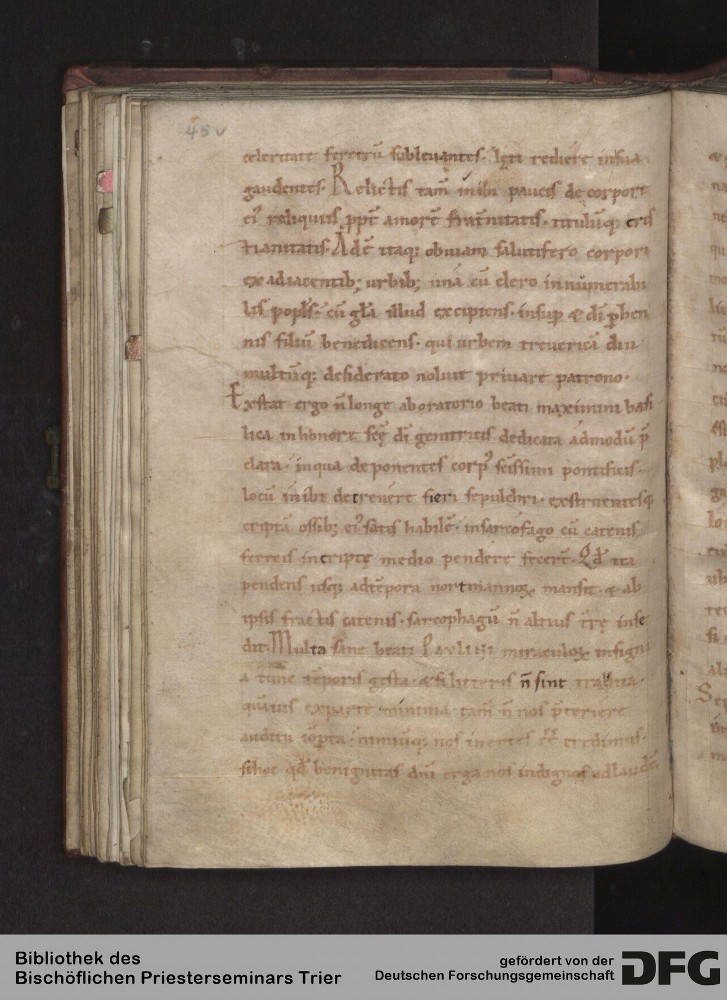 45v
celeritate feretrū subleuantes. lęti rediere in sua
gaudentes. Relictis tam̄ inibi paucis de corporɪ
ei᷒ reliquiis ꝓpt̄ amorē frat̄nitatis. titulūq; cris
tianitatis. Adē itaq; obuiam salutifero corpori
ex adiacentib; urbib; una cū clero innumerabi
lis popl's. cū gl'a illud excipiens. insup̱ & dī ꝑhen
nis filiū benedicens. qui urbem treuericā diu
multūq; desiderato noluit priuare patrono.
Exstat ergo n̄ longe ab oratorio beati maximini basi
lica in honore scę̄ dī genitricis dedicata admodū p̄
clara. in qua deponentes corp᷒ sc̄issimi pontificis.
locū inibi decreuere fieri sepulchri. exstruentesq;
criptā ossib; ei᷒ satis habilē. in sarcofago cū catenis
ferreis in criptę medio pendere fecer̄t. Qd̄ ita
pendens usq; ad tēpora nortmannoꝝ mansit. & ab
ipsis fractis catenis. sarcophagū n̄ altius t̄rę inse
dit. Multa sane beati PAVLINI miraculoꝝ insigni
a tunc tēporis gesta. & si litteris n̄ sint tradita.
quāuis ex parte minima. tam̄ n̄ nos p̄teriere
auditu cōpta. nimiūq; nos inertes eē credimus.
si hoc qd̄ benignitas dn̄i erga nos indignos ad laudē
Bibliothek des
Bischöflichen Priesterseminars Trier
gefördert von der
Deutschen Forschungsgemeinschaft
DFG